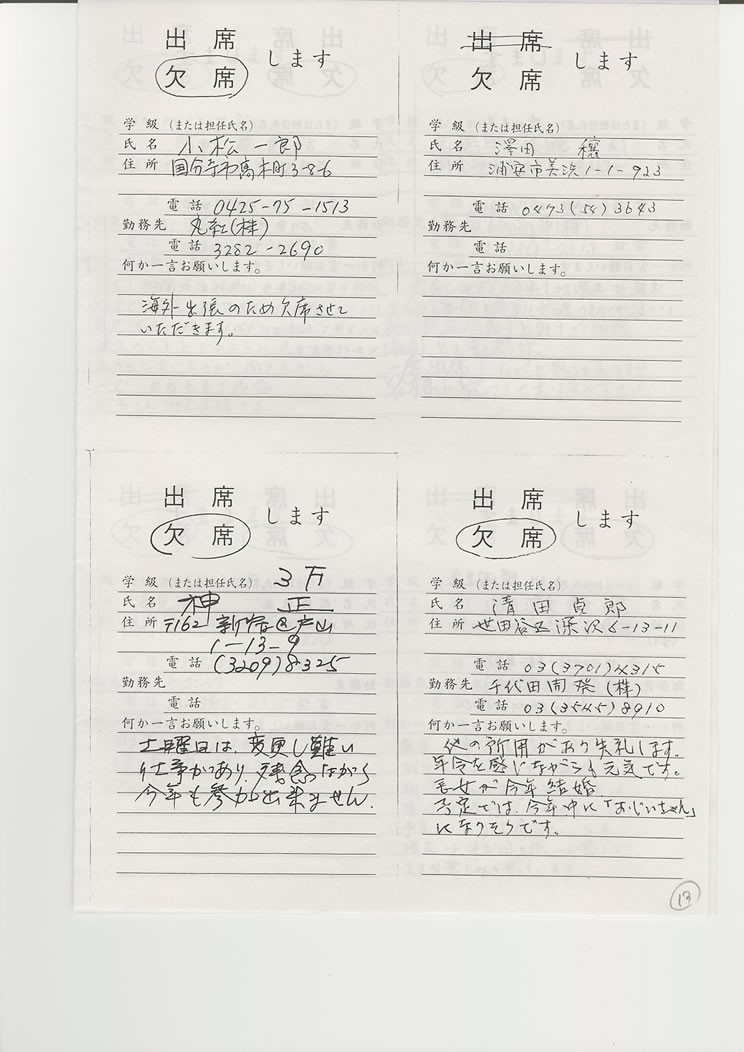 出席
欠席 します
学級 (または担任氏名)
氏名 小松一郎
住所 国分寺市高木町3-8-6
電話 0425-75-1513
勤務先 丸紅(株)
電話 3282-2690
何か一言お願いします。
海外出張のため欠席させて
いただきます。
出席
欠席 します
学級 (または担任氏名)
氏名 澤田 穣
住所 浦安市美浜1-1-923
電話 0473(54)3643
勤務先
電話
何か一言お願いします。
出席
欠席 します
学級 (または担任氏名) 3万
氏名 神 正一
住所 〒162 新宿区戸山
1-13-9
電話 (3209)8325
勤務先
電話
何か一言お願いします。
土曜日は、変更し難い
仕事があり、残念ながら
今年も参加出来ません.
出席
欠席 します
学級 (または担任氏名)
氏名 清田貞郎
住所 世田谷区深沢6-13-11
電話 03(3701)4315
勤務先 千代田開発(株)
電話 03(3545)8910
何か一言お願いします。
他の所用があり失礼します.
年令を感じながらも元気です。
長女が今年結婚
予定では、今年中に「おじいちゃん」
になりそうです。
13